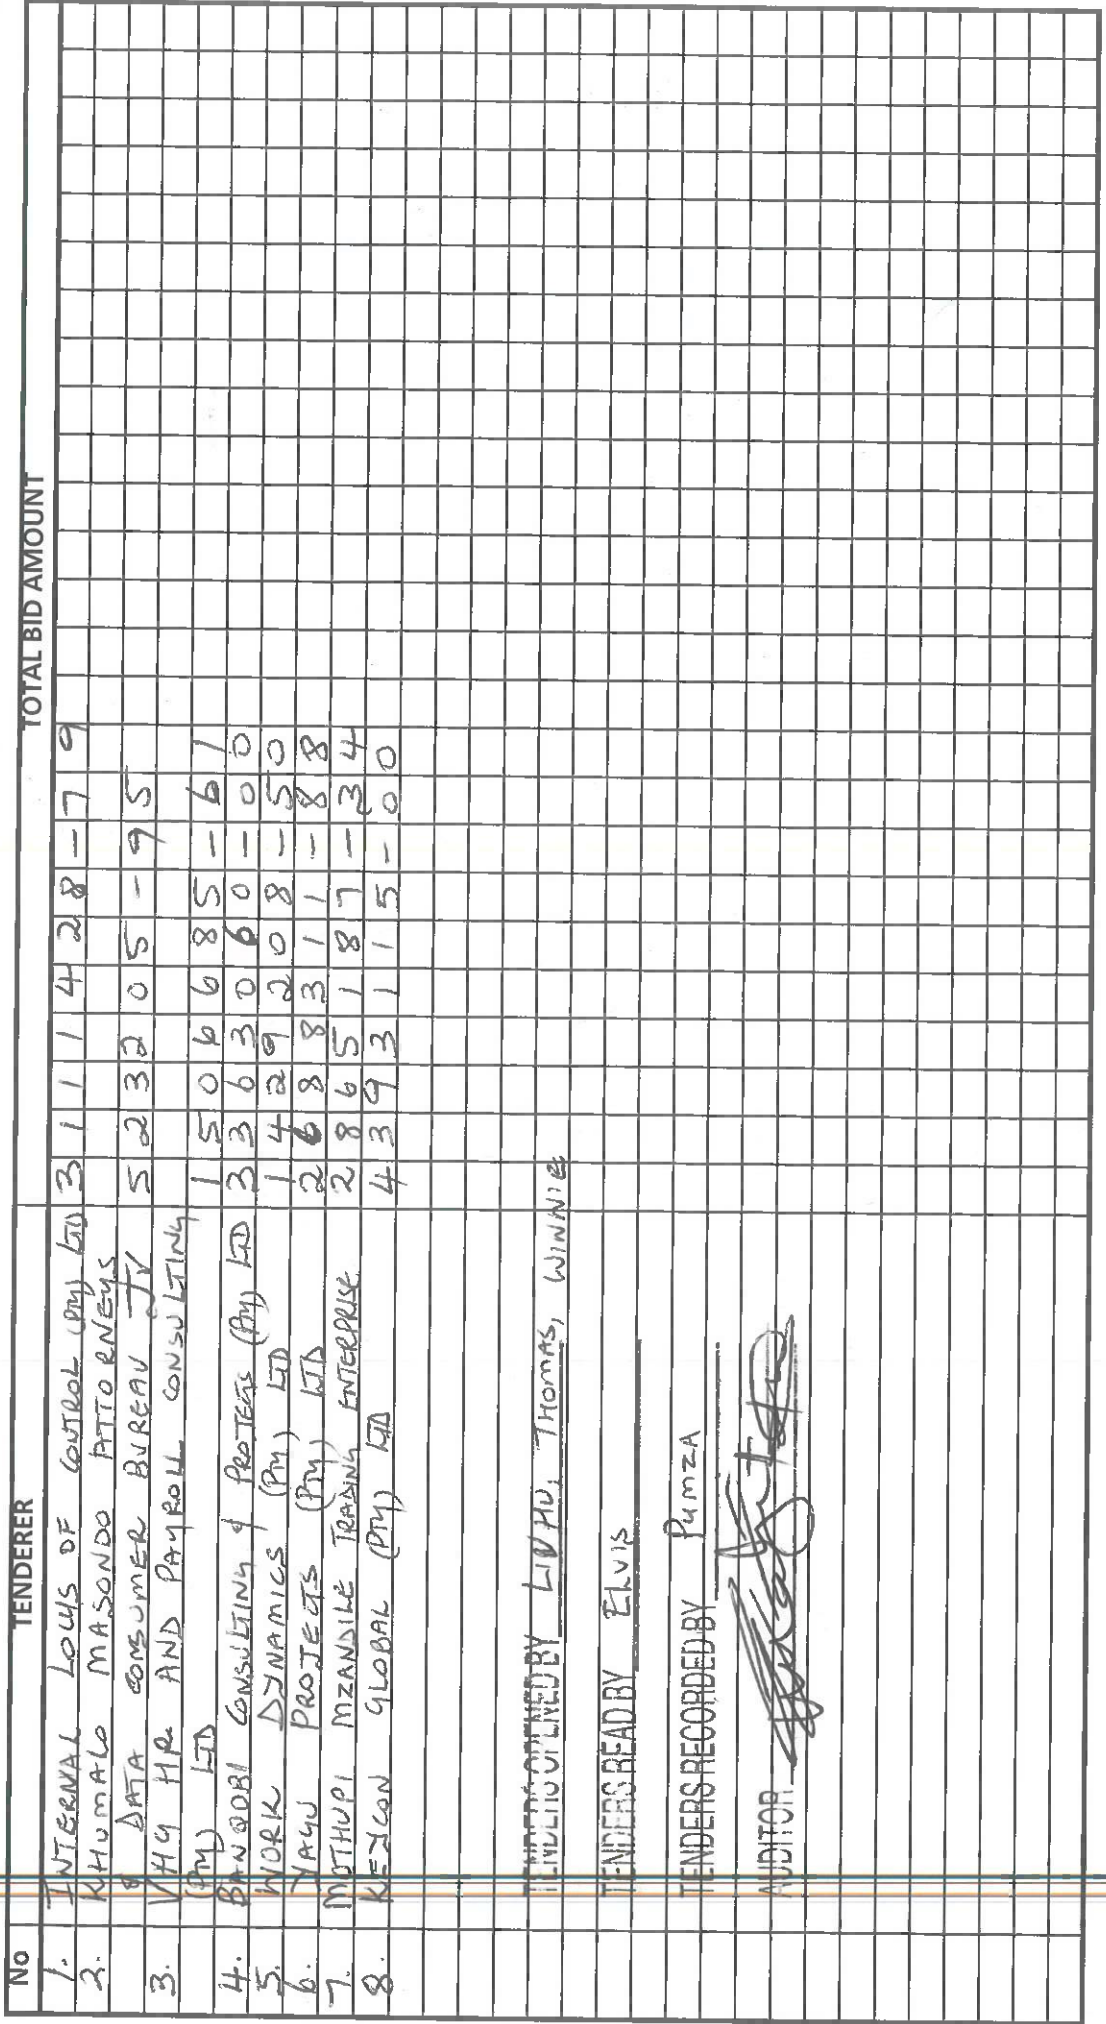 No TENDERER TOTAL BID AMOUNT
1. INTERNAL LOCUS OF CONTROL (Pty) LTD 3 1 1 1 4 2 8 - 7 9
2. KHUMALO MASONDO ATTORNEYS
& DATA CONSUMER BUREAU JV 5 2 3 2 0 5 - 9 5
3. VHG HR AND PAYROLL CONSULTING
(Pty) LTD 1 5 0 6 6 8 5 - 6 1
4. BANQOBI CONSULTING & PROJECTS (Pty) LTD 3 3 6 3 0 6 0 - 0 0
5. WORK DYNAMICS (Pty) LTD 1 4 2 9 2 0 8 - 5 0
6. YAGU PROJECTS (Pty) LTD 2 6 8 8 3 1 1 - 8 8
7. MUTHUPI MZANDILE TRADING ENTERPRISE 2 8 6 5 1 8 7 - 3 4
8. KEYCON GLOBAL (Pty) LTD 4 3 9 3 1 1 5 - 0 0
TENDERS OPENED BY LIVHU, THOMAS, WINNIE
TENDERS READ BY ELVIS
TENDERS RECORDED BY PUMZA
AUDITOR